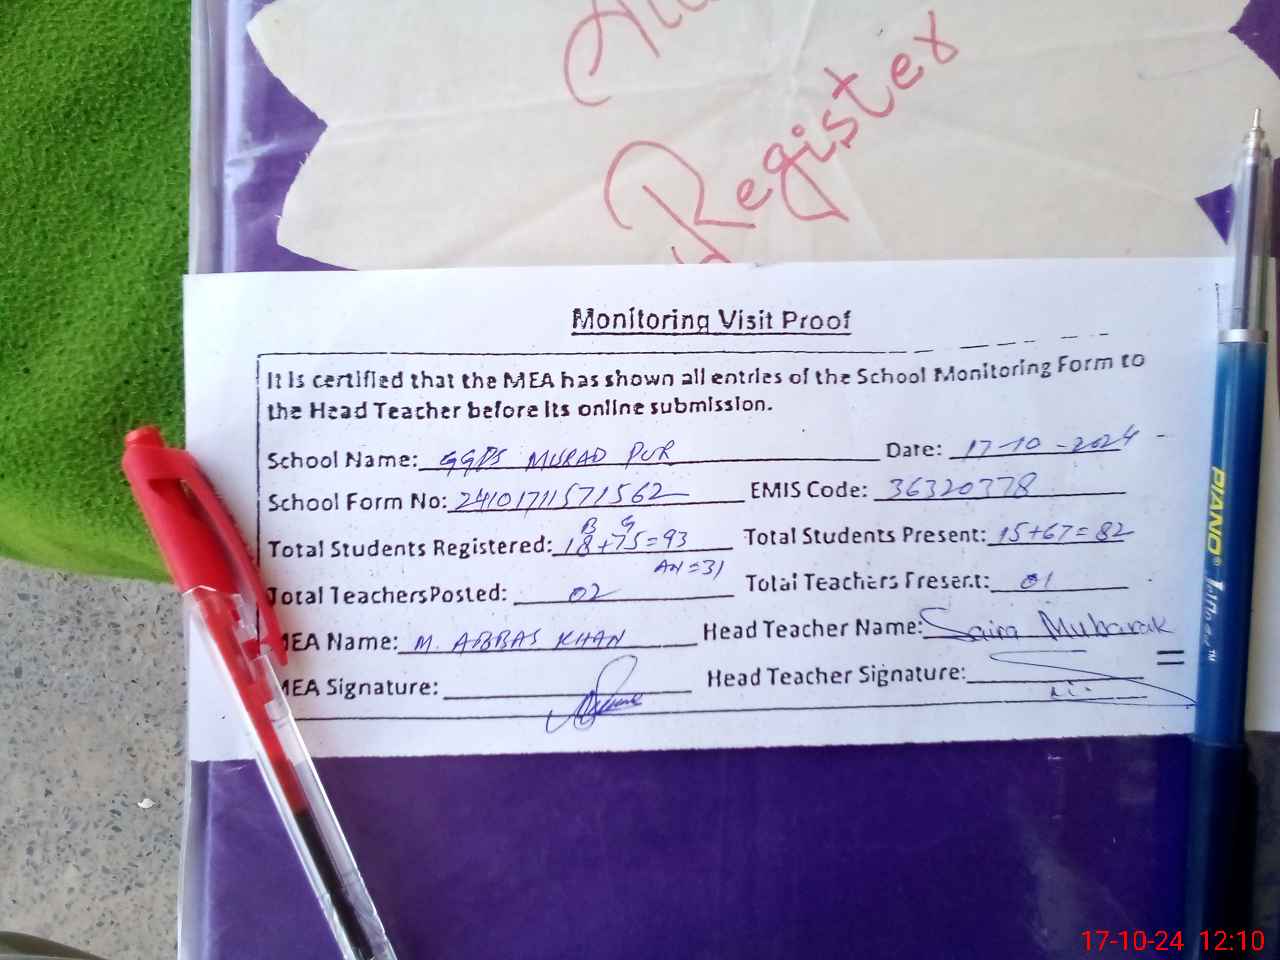 Register
Monitoring Visit Proof
It is certified that the MEA has shown all entries of the School Monitoring Form to
the Head Teacher before its online submission.
School Name: GGPS MURAD PUR Date: 17-10-2024
School Form No: 24101711571562 EMIS Code: 36320378
B G
Total Students Registered: 18+75=93 Total Students Present: 15+67=82
AN=31
Total Teachers Posted: 02 Total Teachers Present: 01
MEA Name: M. ABBAS KHAN Head Teacher Name: Saira Mubarak
MEA Signature: Head Teacher Signature:
PIANO
17-10-24 12:10